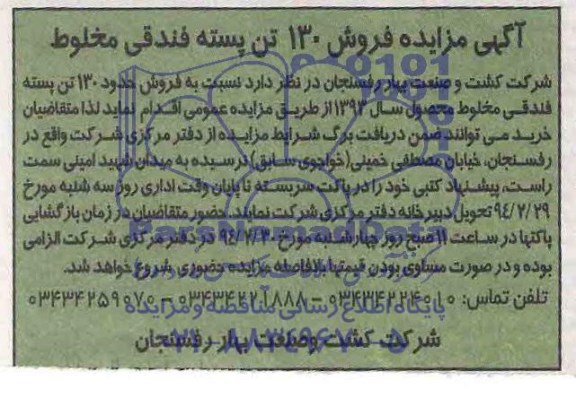 آگهی مزایده فروش ۱۳۰ تن پسته فندقی مخلوط
شرکت کشت و صنعت بهار رفسنجان در نظر دارد نسبت به فروش حدود ۱۳۰ تن پسته
فندقی مخلوط محصول سال ۱۳۹۳ از طریق مزایده عمومی اقدام نماید لذا متقاضیان
خرید می توانند ضمن دریافت برگ شرایط مزایده از دفتر مرکزی شرکت واقع در
رفسنجان، خیابان مصطفی خمینی (خواجوی سابق) نرسیده به میدان شهید امینی سمت
راست، پیشنهاد کتبی خود را در پاکت سربسته تا پایان وقت اداری روز سه شنبه مورخ
۹۴/۲/۲۹ تحویل دبیرخانه دفتر مرکزی شرکت نمایند. حضور متقاضیان در زمان بازگشایی
پاکتها در ساعت ۱۱ صبح روز چهارشنبه مورخ ۹۴/۲/۳۰ در دفتر مرکزی شرکت الزامی
بوده و در صورت مساوی بودن قیمتها بلافاصله مزایده حضوری شروع خواهد شد.
تلفن تماس: ۰۳۴۳۴۲۲۴۰۱۰ - ۰۳۴۳۴۲۲۱۸۸۸ - ۰۳۴۳۴۲۵۹۰۷۰
پایگاه اطلاع رسانی مناقصه و مزایده
شرکت کشت و صنعت بهار رفسنجان